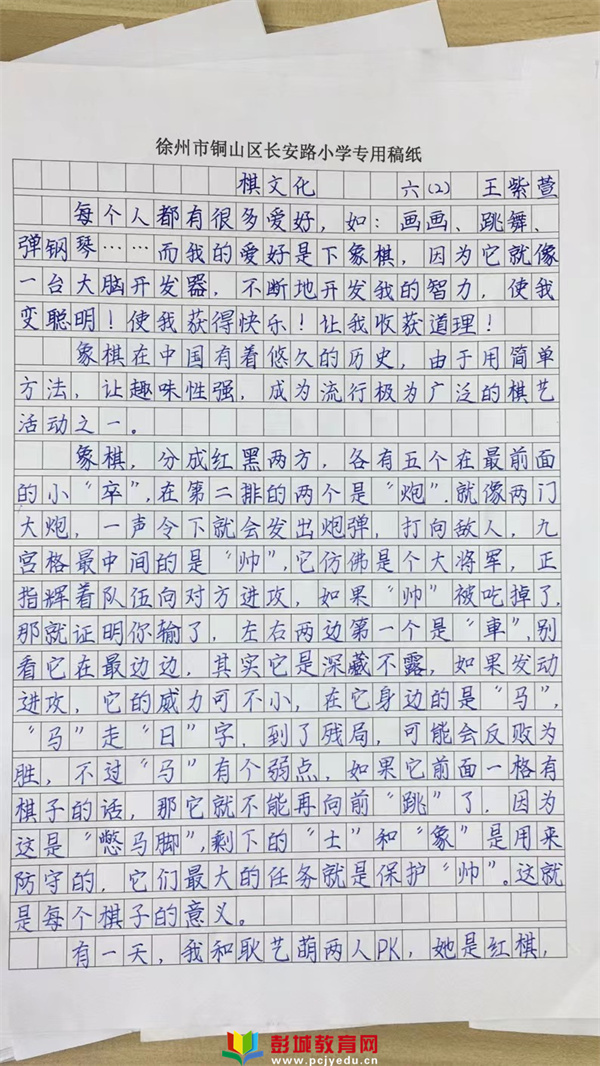 徐州市铜山区长安路小学专用稿纸
棋文化 六(2) 王紫萱
每个人都有很多爱好，如：画画、跳舞、
弹钢琴……而我的爱好是下象棋，因为它就像
一台大脑开发器，不断地开发我的智力，使我
变聪明！使我获得快乐！让我收获道理！
象棋在中国有着悠久的历史，由于用简单
方法，让趣味性强，成为流行极为广泛的棋艺
活动之一。
象棋，分成红黑两方，各有五个在最前面
的小“卒”，在第二排的两个是“炮”.就像两门
大炮，一声令下就会发出炮弹，打向敌人，九
宫格最中间的是“帅”，它仿佛是个大将军，正
指辉着队伍向对方进攻，如果“帅”被吃掉了，
那就证明你输了，左右两边第一个是“車”，别
看它在最边边，其实它是深藏不露，如果发动
进攻，它的威力可不小，在它身边的是“马”，
“马”走“日”字，到了残局，可能会反败为
胜，不过“马”有个弱点，如果它前面一格有
棋子的话，那它就不能再向前“跳”了，因为
这是“憋马脚”，剩下的“士”和“象”是用来
防守的，它们最大的任务就是保护“帅”。这就
是每个棋子的意义。
有一天，我和耿艺萌两人PK，她是红棋，
彭城教育网
www.pcjyedu.cn